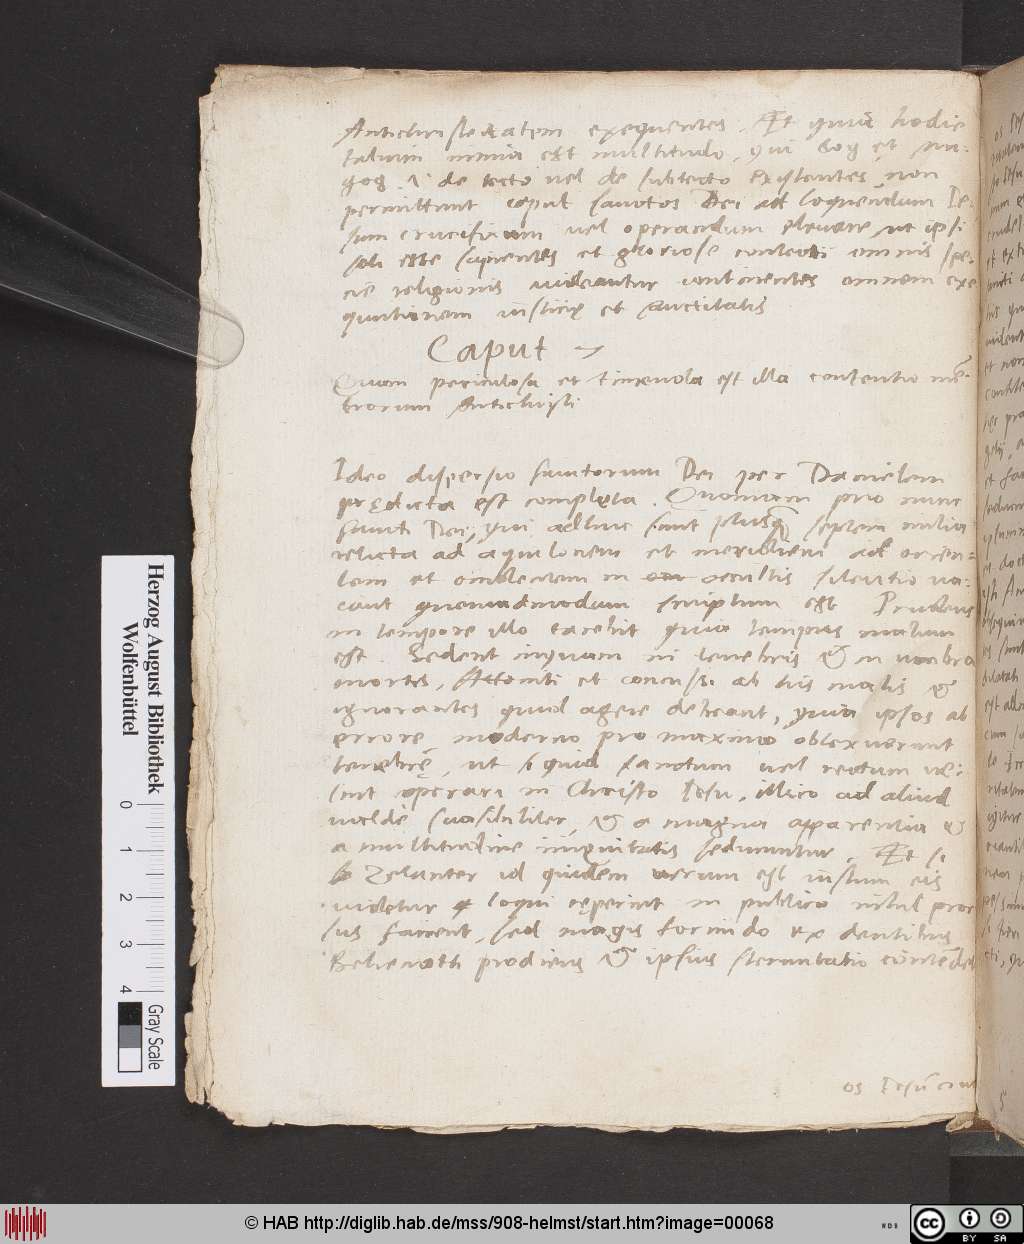 Antichristeitatem exequentes. Et quia hodie
talium nimia est multitudo, qui Gog et Ma-
gog. i. de tecto vel de subtecto existentes non
permittunt caput sanctos Dei ad loquendum Ie-
sum crucifixum vel operandum elevare, ut ipsi
soli esse sapientes et gloriose contenti omnis spe-
cie religionis videantur continentes omnem exe
quutionem iusticię et sanctitatis
Caput 7
Quam periculosa et timenda est illa contentio mē-
brorum Antichristi
Ideo dispersio sanctorum Dei per Danielem
prędicta est completa. Quoniam pro nunc
sancti Dei, qui adhuc sunt plusq̃ septem milia
relicta ad aquilonem et meridiem ad orien-
tem et occidentem in occultis silentio va-
cant quemadmodum scriptum est Prudens
in tempore illo tacebit quia tempus malum
est. Sedent inquam in tenebris & in umbra
mortis, Attoniti et concussi ab his malis &
ignorantes quid agere debeant, quia ipsos ab
errore moderno pro maximo obtexerunt
tenebrę, ut si quid sanctum vel rectum ve-
lint operari in Christo Iesu, illico ad aliud
valde suasibiliter, & a magna apparentia &
a multitudine iniquitatis seducuntur. Et si
Zelanter id quidem verum est iustum eis
videtur loqui cęperint in publico nihil pror
sus facient, sed magis formido ex dentibus
Behemoth prodiens & ipsius sternutatio
os Iesu
Herzog August Bibliothek
Wolfenbüttel
0 1 2 3 4
Gray Scale
© HAB http://diglib.hab.de/mss/908-helmst/start.htm?image=00068
WDB
cc BY SA